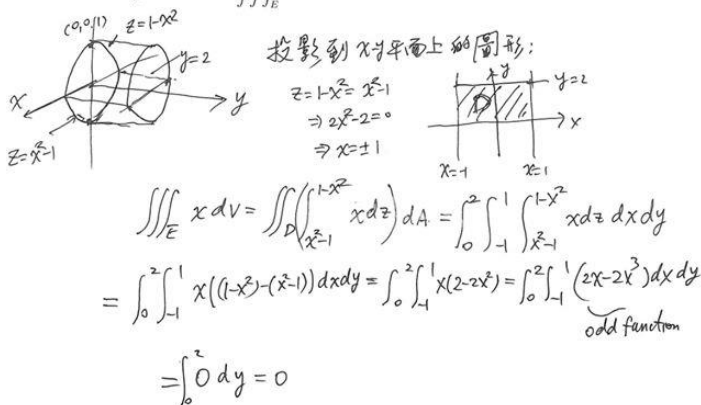 ∭_E
(0,0,1) z=1-x²
y=2
x
y
z=x²-1
投影到 xy平面上的圖形:
z=1-x²=x²-1
⇒2x²-2=0
⇒x=±1
y
y=2
D
x
x=-1 x=1
∭_E x dV = ∬_D(∫_{x²-1}^{1-x²} x dz) dA = ∫_0^2 ∫_{-1}^1 ∫_{x²-1}^{1-x²} x dz dx dy
= ∫_0^2 ∫_{-1}^1 x((1-x²)-(x²-1)) dx dy = ∫_0^2 ∫_{-1}^1 x(2-2x²) = ∫_0^2 ∫_{-1}^1 (2x-2x³) dx dy
odd function
= ∫_0^2 0 dy = 0